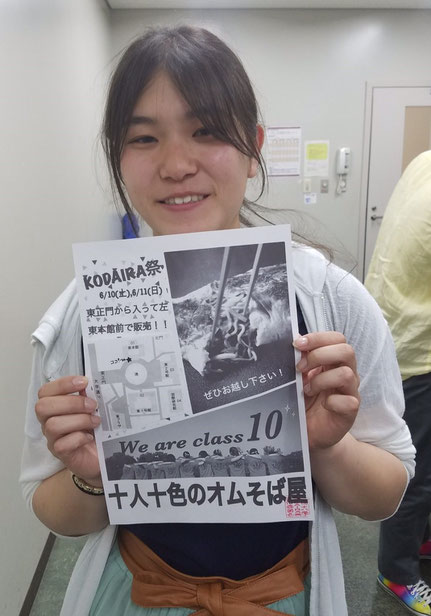 KODAIRA祭
6/10(土),6/11(日)
東正門から入って左
東本館前で販売！！
ココ
ぜひお越し下さい！
We are class 10
十人十色のオムそば屋